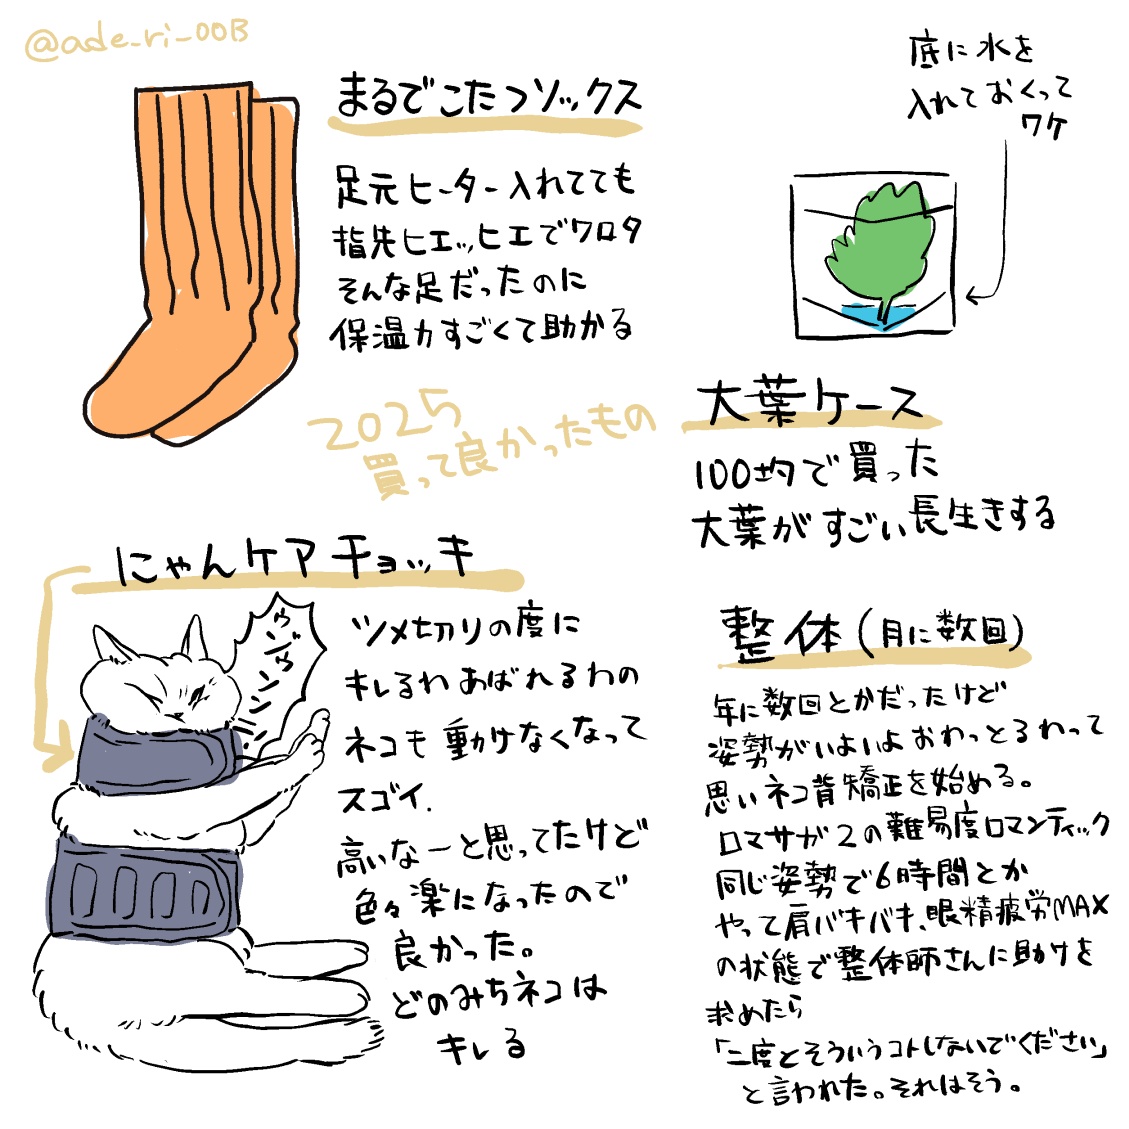 @ade_ri_00B
まるでこたつソックス
足元ヒーター入れてても
指先ヒエッヒエでワロタ
そんな足だったのに
保温力すごくて助かる
底に水を
入れておくって
ワケ
2025
買って良かったもの
大葉ケース
100均で買った
大葉がすごい長生きする
にゃんケアチョッキ
ゥンゥンンン
ツメ切りの度に
キレるわあばれるわの
ネコも動けなくなって
スゴイ.
高いなーと思ってたけど
色々楽になったので
良かった。
どのみちネコは
キレる
整体(月に数回)
年に数回とかだったけど
姿勢がいよいよおわっとるわって
思いネコ背矯正を始める。
ロマサガ2の難易度ロマンティック
同じ姿勢で6時間とか
やって肩バキバキ、眼精疲労MAX
の状態で整体師さんに助けを
求めたら
「二度とそういうコトしないでください」
と言われた。それはそう。